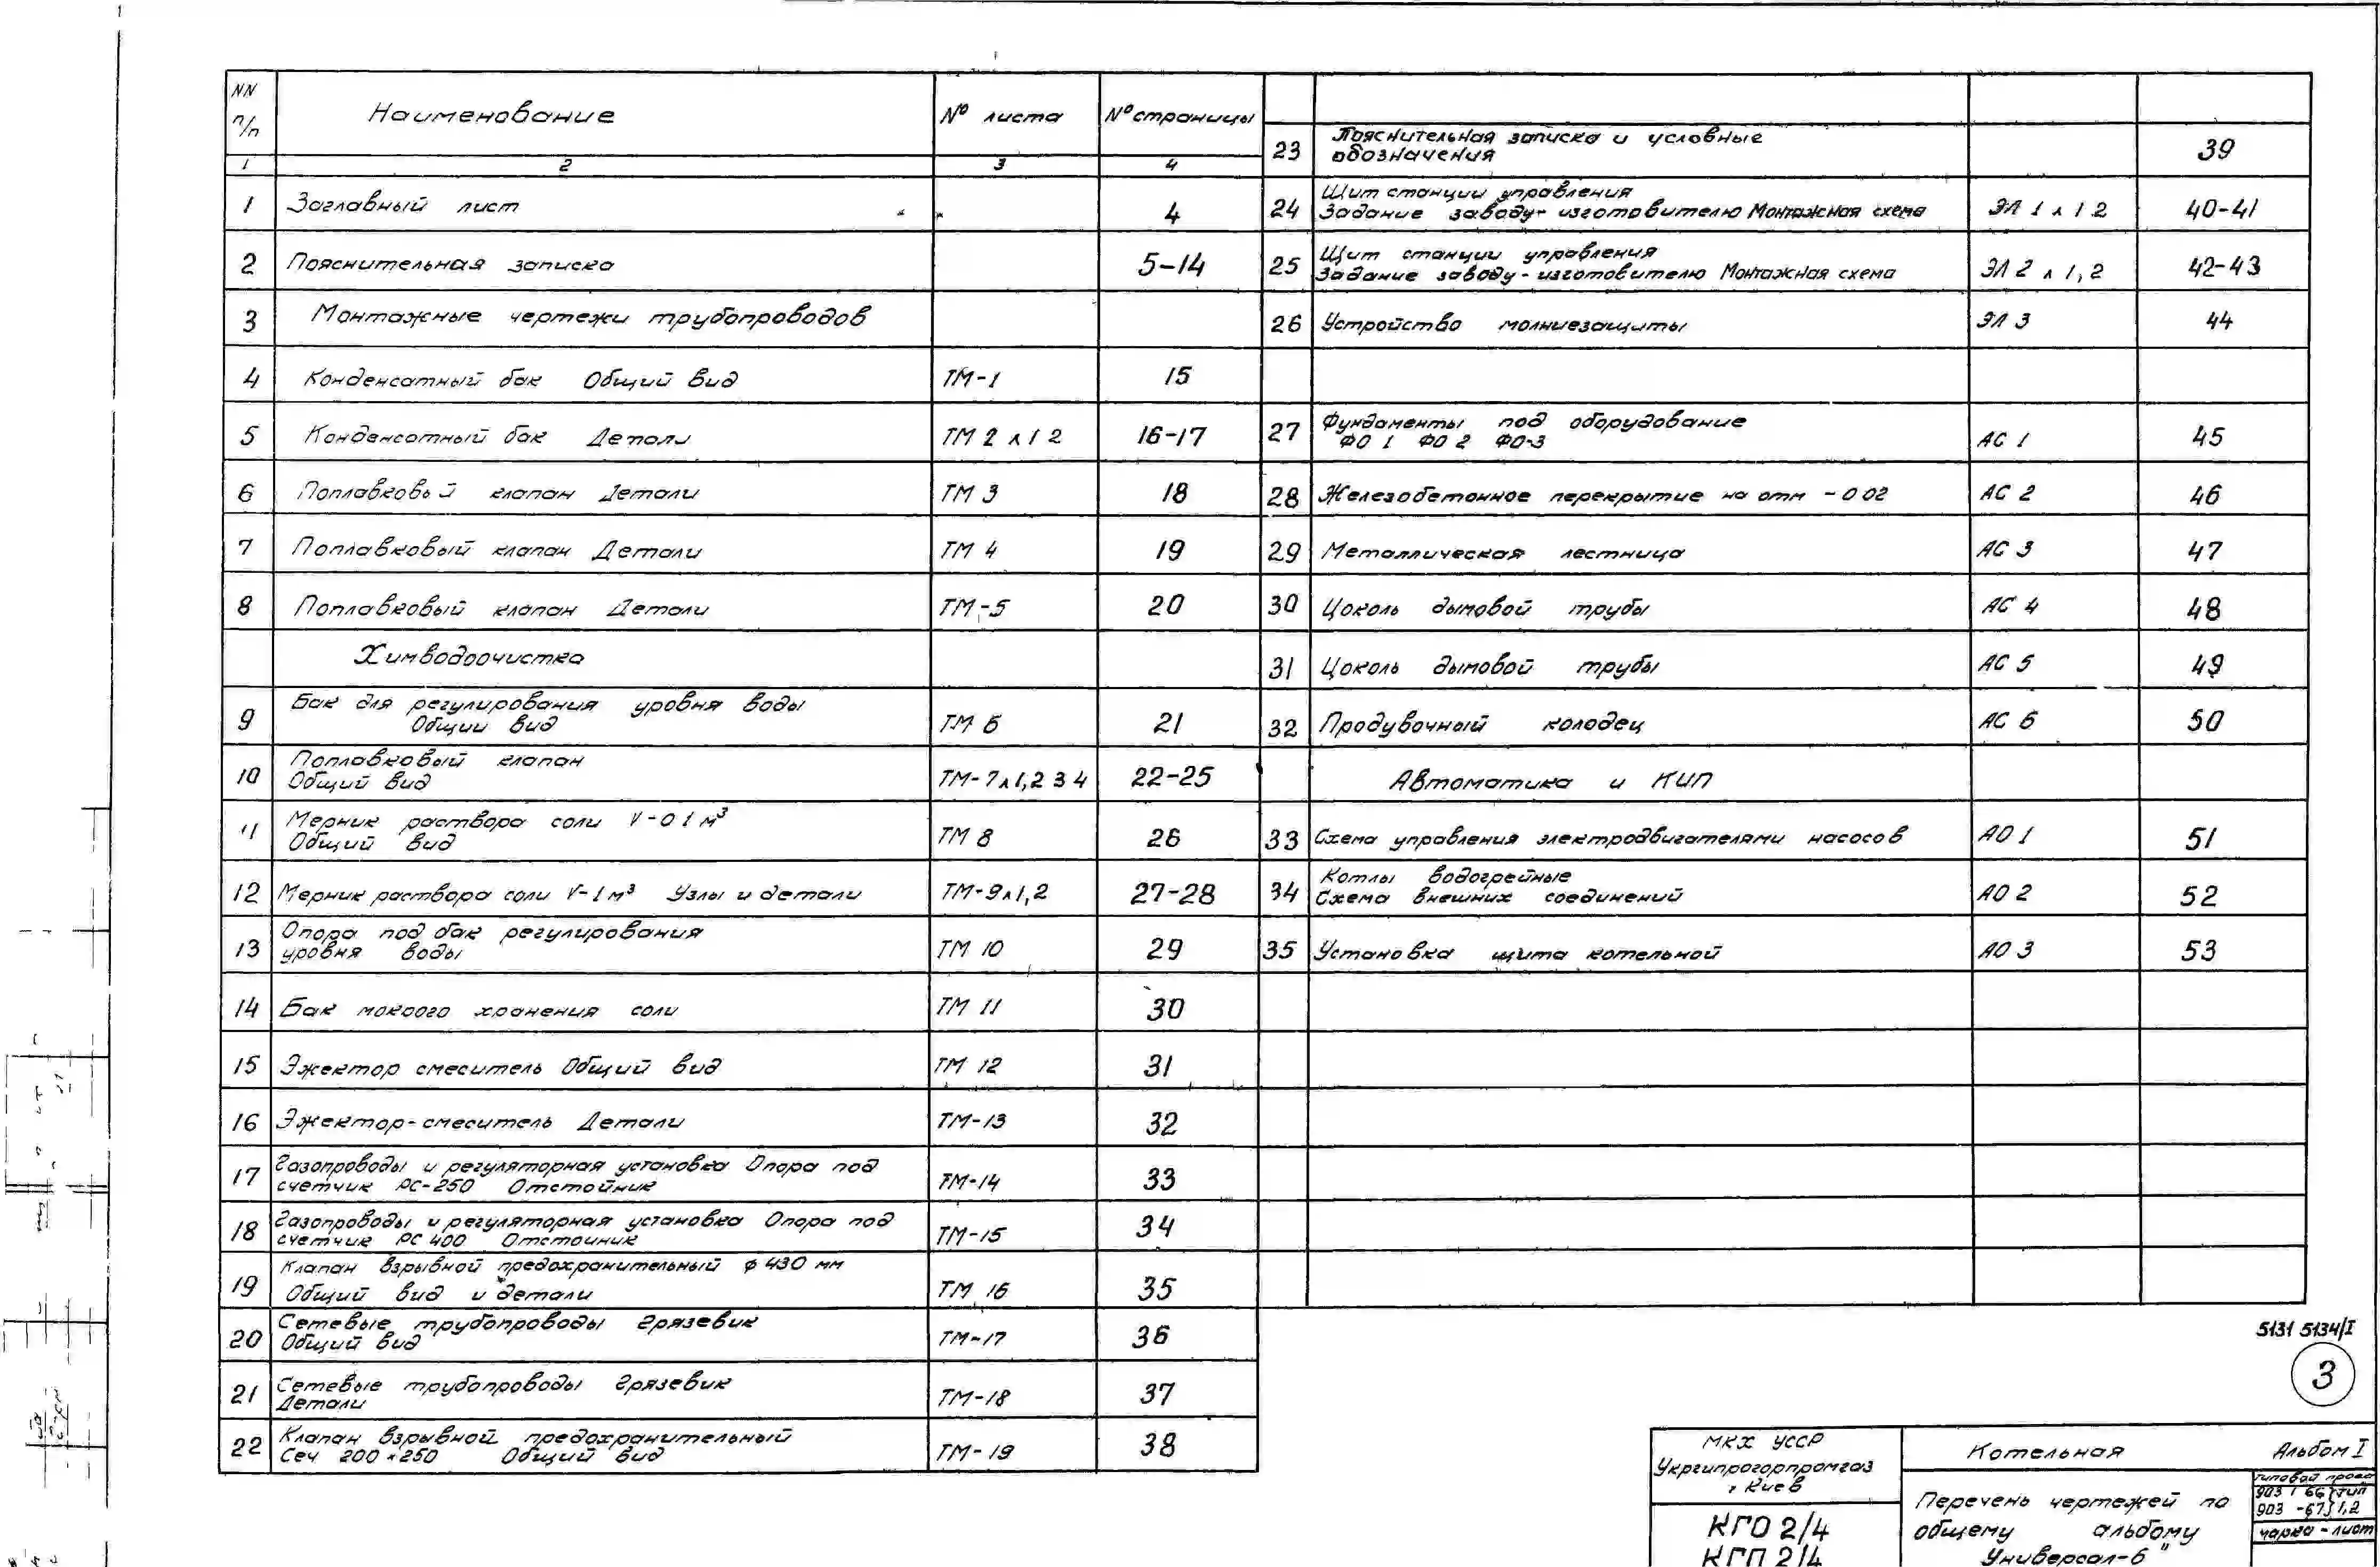 NN п/п Наименование № листа № страницы
1 2 3 4
1 Заглавный лист 4
2 Пояснительная записка 5-14
3 Монтажные чертежи трубопроводов
4 Конденсатный бак Общий вид ТМ-1 15
5 Конденсатный бак Детали ТМ 2 л 1 2 16-17
6 Поплавковый клапан Детали ТМ 3 18
7 Поплавковый клапан Детали ТМ 4 19
8 Поплавковый клапан Детали ТМ-5 20
Химводоочистка
9 Бак для регулирования уровня воды
Общий вид ТМ 6 21
10 Поплавковый клапан
Общий вид ТМ-7л1,2 3 4 22-25
11 Мерник раствора соли V-0 1 м³
Общий вид ТМ 8 26
12 Мерник раствора соли V-1м³ Узлы и детали ТМ-9л1,2 27-28
13 Опора под бак регулирования
уровня воды ТМ 10 29
14 Бак мокрого хранения соли ТМ 11 30
15 Эжектор смеситель Общий вид ТМ 12 31
16 Эжектор-смеситель Детали ТМ-13 32
17 Газопроводы и регуляторная установка Опора под
счетчик РС-250 Отстойник ТМ-14 33
18 Газопроводы и регуляторная установка Опора под
счетчик РС 400 Отстойник ТМ-15 34
19 Клапан взрывной предохранительный ф 430 мм
Общий вид и детали ТМ 16 35
20 Сетевые трубопроводы Грязевик
Общий вид ТМ-17 36
21 Сетевые трубопроводы Грязевик
Детали ТМ-18 37
22 Клапан взрывной предохранительный
Сеч 200×250 Общий вид ТМ-19 38
23 Пояснительная записка и условные
обозначения 39
24 Щит станции управления
Задание заводу-изготовителю Монтажная схема ЭЛ 1 л 1 2 40-41
25 Щит станции управления
Задание заводу-изготовителю Монтажная схема ЭЛ 2 л 1,2 42-43
26 Устройство молниезащиты ЭЛ 3 44
27 Фундаменты под оборудование
ФО 1 ФО 2 ФО-3 АС 1 45
28 Железобетонное перекрытие на отм -0 02 АС 2 46
29 Металлическая лестница АС 3 47
30 Цоколь дымовой трубы АС 4 48
31 Цоколь дымовой трубы АС 5 49
32 Продувочный колодец АС 6 50
Автоматика и КИП
33 Схема управления электродвигателями насосов АО 1 51
34 Котлы водогрейные
Схема внешних соединений АО 2 52
35 Установка щита котельной АО 3 53
5131 5134/I
3
МКХ УССР
Укргипрогорпромгаз
г Киев
КГО 2/4
КГП 2/4
Котельная Альбом I
Перечень чертежей по
общему альбому
Универсал-6"
типовой проект
903 1 66
903 -67 1,2
марка-лист